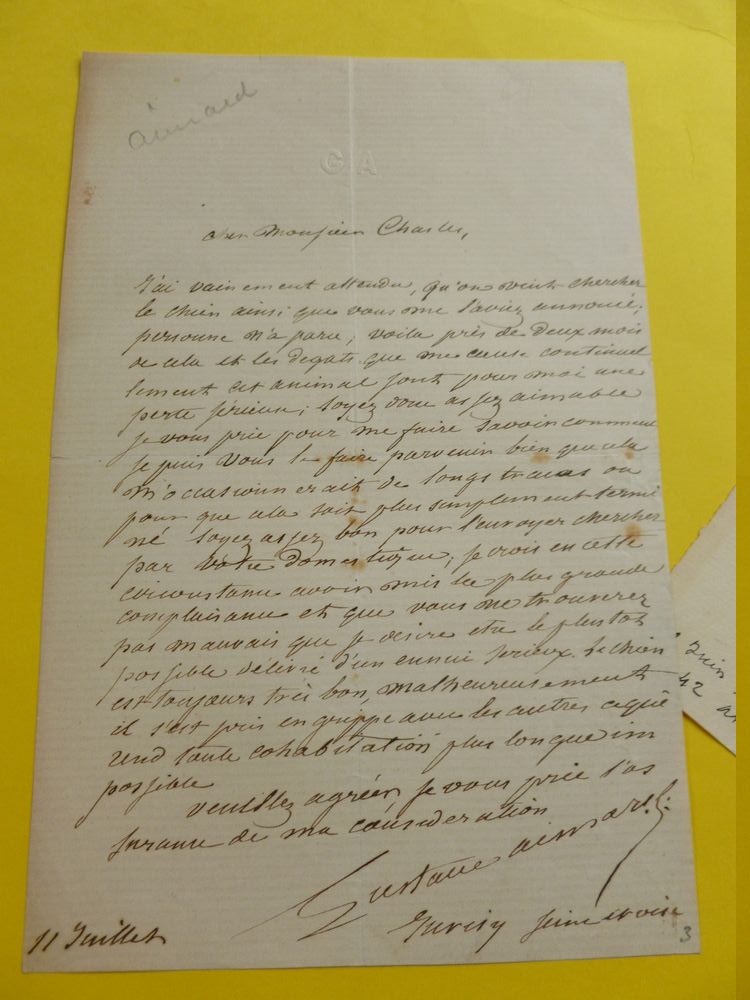 aimard
GA
cher Monsieur Charles,
J'ai vainement attendu, qu'on vint chercher
le chien ainsi que vous me l'aviez annoncé;
personne n'a paru, voila près de deux mois
de cela et les degats que me cause continuel
lement cet animal sont pour moi une
perte sérieuse; soyez donc assez aimable
je vous prie pour me faire savoir comment
je puis vous le faire parvenir bien que cela
m'occasionnerait de longs tracas ou
pour que cela soit plus simplement termi
né soyez assez bon pour l'envoyer chercher
par votre domestique; je crois en cette
circonstance avoir mis la plus grande
complaisance et que vous ne trouverez
pas mauvais que je désire etre le plustot
possible délivré d'un ennui serieux. Le chien
est toujours très bon, malheureusement
il s'est pris en grippe avec les autres ce qui
rend toute cohabitation plus longue im
possible
veuillez agréer, je vous prie l'as
surance de ma consideration
Gustave aimard
Juvisy Seine et oise
11 Juillet
3
Juin
42